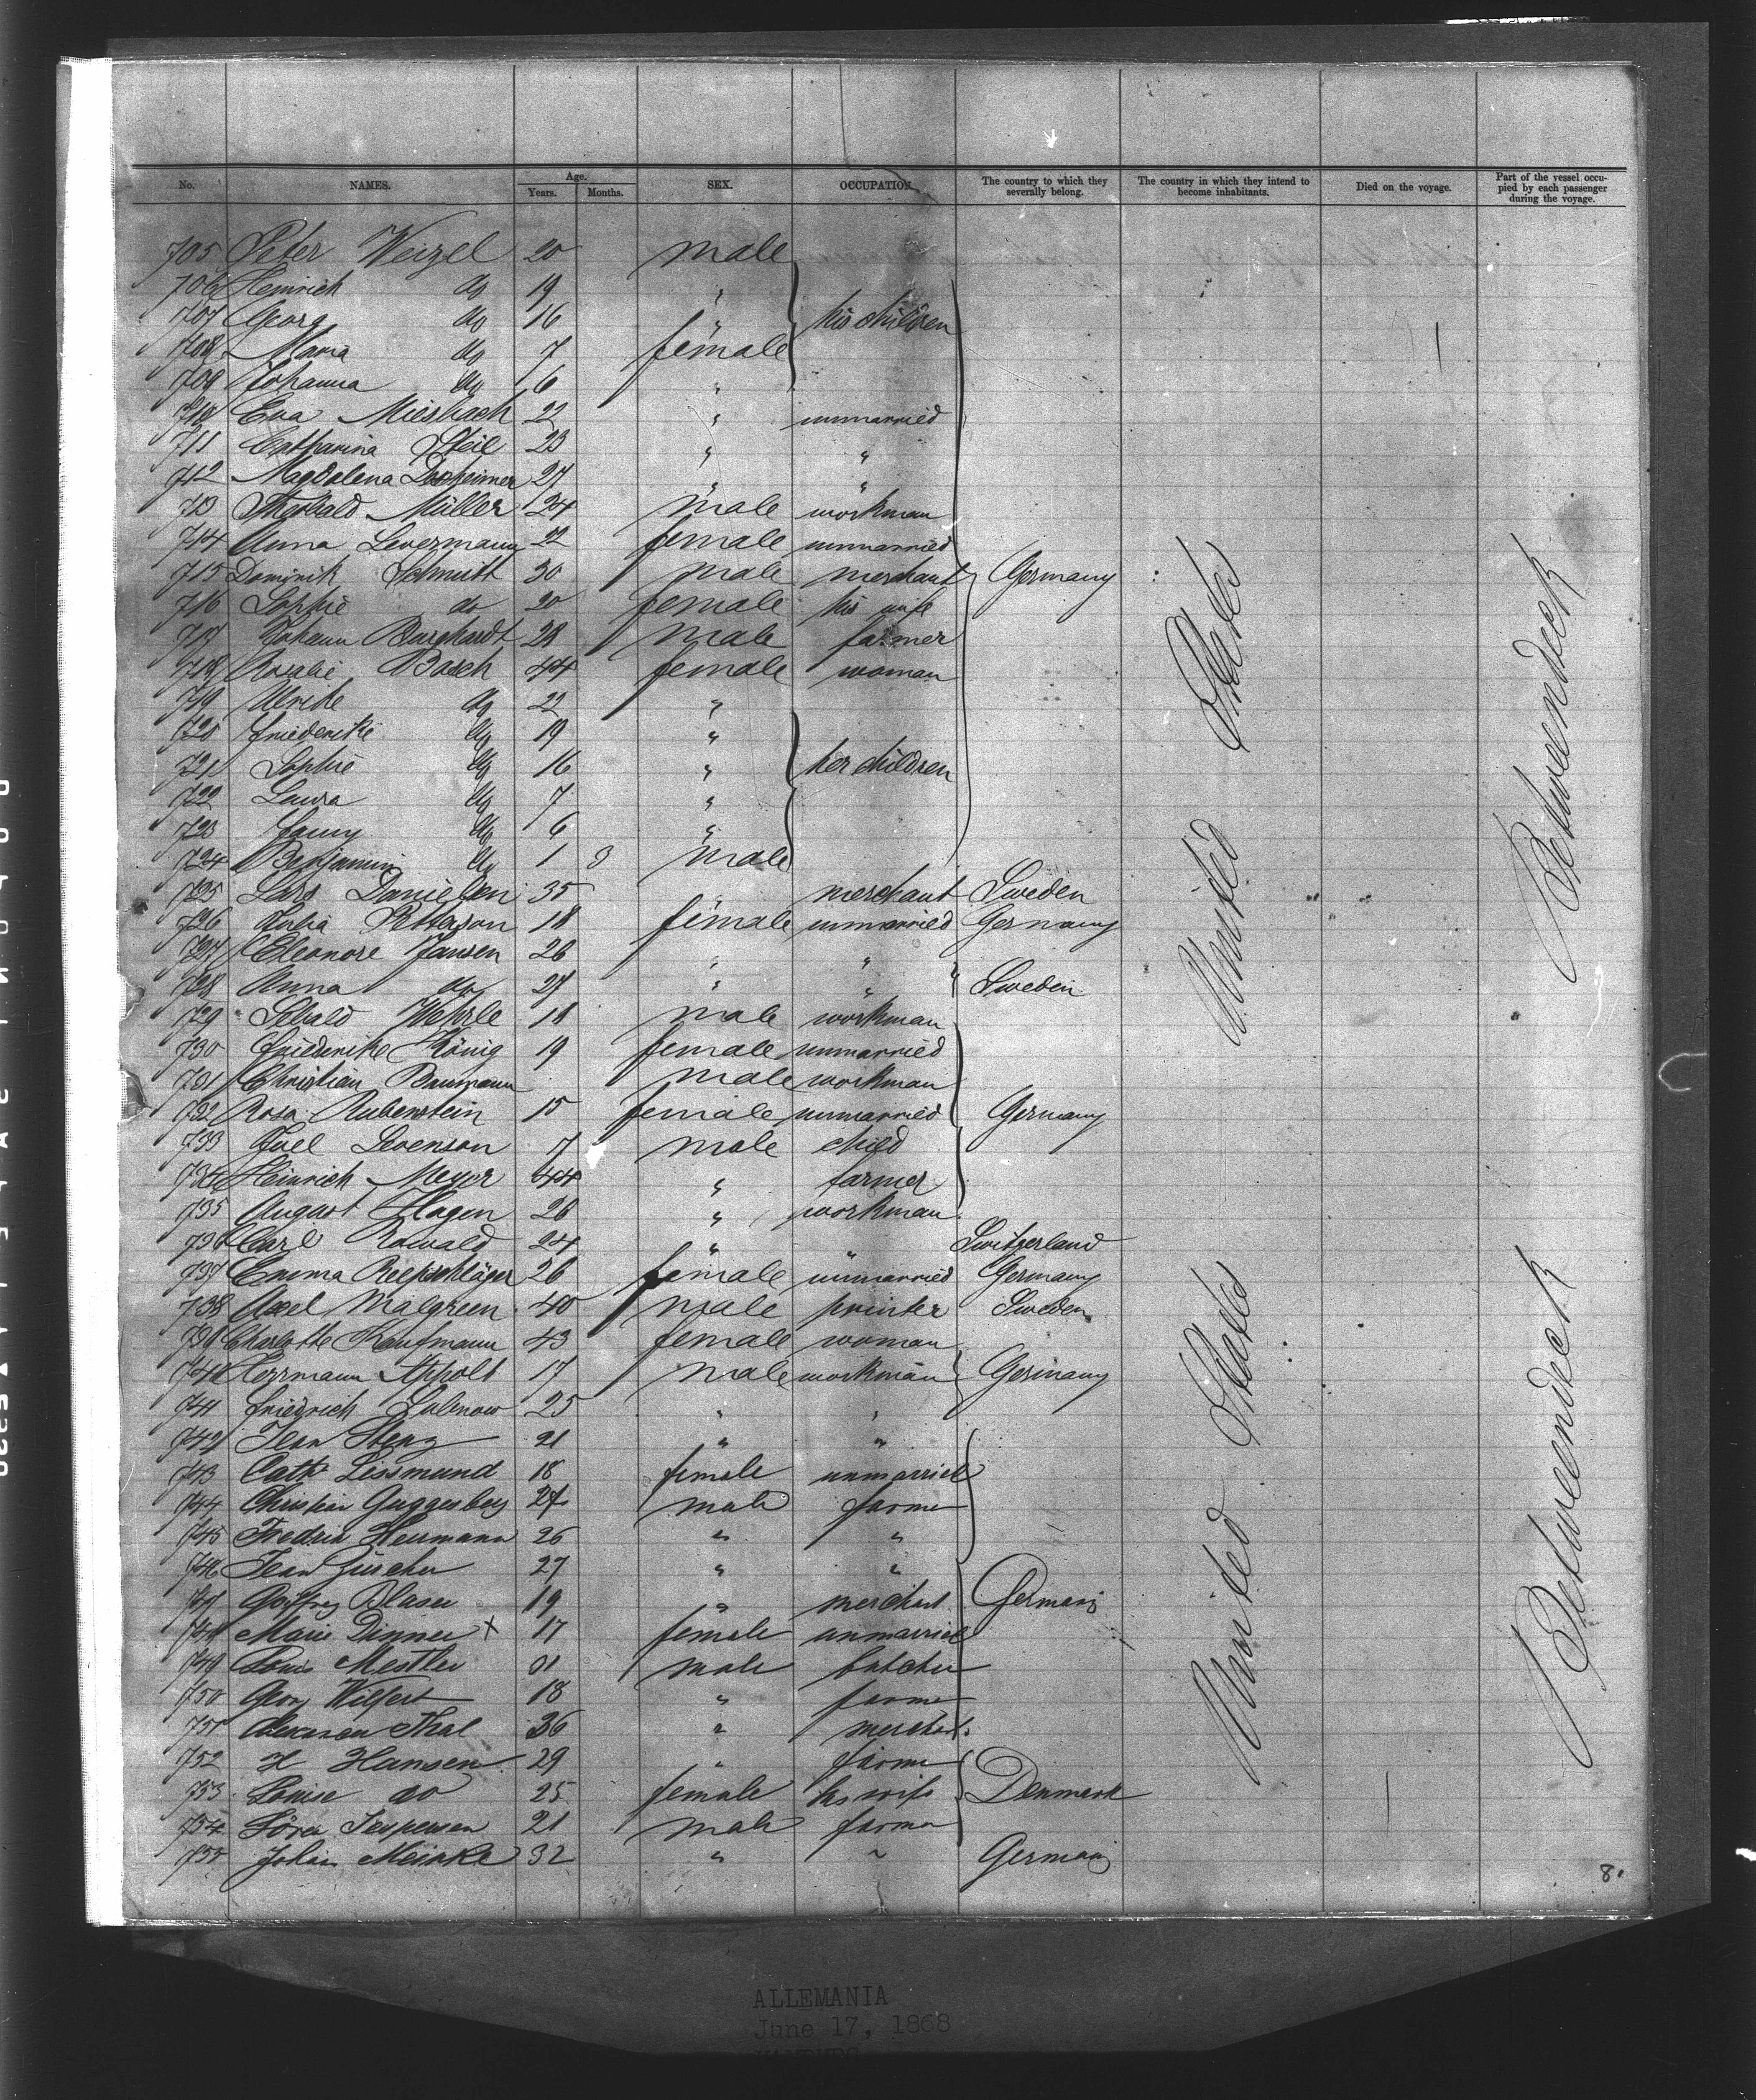 No. NAMES. Age. Years. Months. SEX. OCCUPATION. The country to which they severally belong. The country in which they intend to become inhabitants. Died on the voyage. Part of the vessel occupied by each passenger during the voyage.
705 Peter Weizel 20 male
706 Heinrich do 19 "
707 Georg do 16 " his children
708 Maria do 7 female
709 Johanna do 6 "
710 Eva Miesbach 22 " unmarried
711 Catharina Steil 23 " "
712 Magdalena Dexheimer 27 " "
713 Theobald Müller 24 male workman
714 Anna Levermann 22 female unmarried
715 Dominik Schmitt 30 male merchant Germany
716 Sophie do 20 female his wife
717 Johann Burghardt 28 male farmer
718 Rosalie Basch 44 female woman
719 Ulrike do 22 "
720 Friederike do 19 "
721 Sophie do 16 " her children
722 Laura do 7 "
723 Fanny do 6 "
724 Benjamin do 1 3 male
725 Lars Danielsen 35 " merchant Sweden
726 Julia Petterson 18 female unmarried Germany
727 Eleonore Jansen 26 " "
728 Anna do 27 " " " Sweden
729 Sebald Wehrle 18 male workman
730 Friederike König 19 female unmarried
731 Christian Baumann male workman
732 Rosa Rubenstein 15 female unmarried Germany
733 Joel Levenson 7 male child
734 Heinrich Meyer 44 " farmer
735 August Hagen 26 " workman
736 Carl Rowald 24 " " Switzerland
737 Emma Reepschläger 26 female unmarried Germany
738 Axel Malgreen 40 male printer Sweden
739 Charlotte Kaufmann 43 female woman
740 Herrmann Appolt 17 male workman Germany
741 Friedrich Lubnow 25 " "
742 Jean Stenz 21 " "
743 Cath. Lissmund 18 female unmarried
744 Christian Guggesberg 24 male farmer
745 Fredrik Hermann 26 " "
746 Jean Zürcher 27 " "
747 Blaser 19 " merchant Germany
748 Marie Dinner x 17 female unmarried
749 Louis Mestler 31 male butcher
750 Georg Wilfert 18 " farmer
751 Thal 36 " merchant
752 H Hansen 29 " farmer
753 Louise do 25 female his wife Denmark
754 Sören Jespersen 21 male farmer
755 Johan Meinke 32 " " Germany
United States
United States
Betweendeck
Betweendeck
8.
ALLEMANIA
June 17, 1868